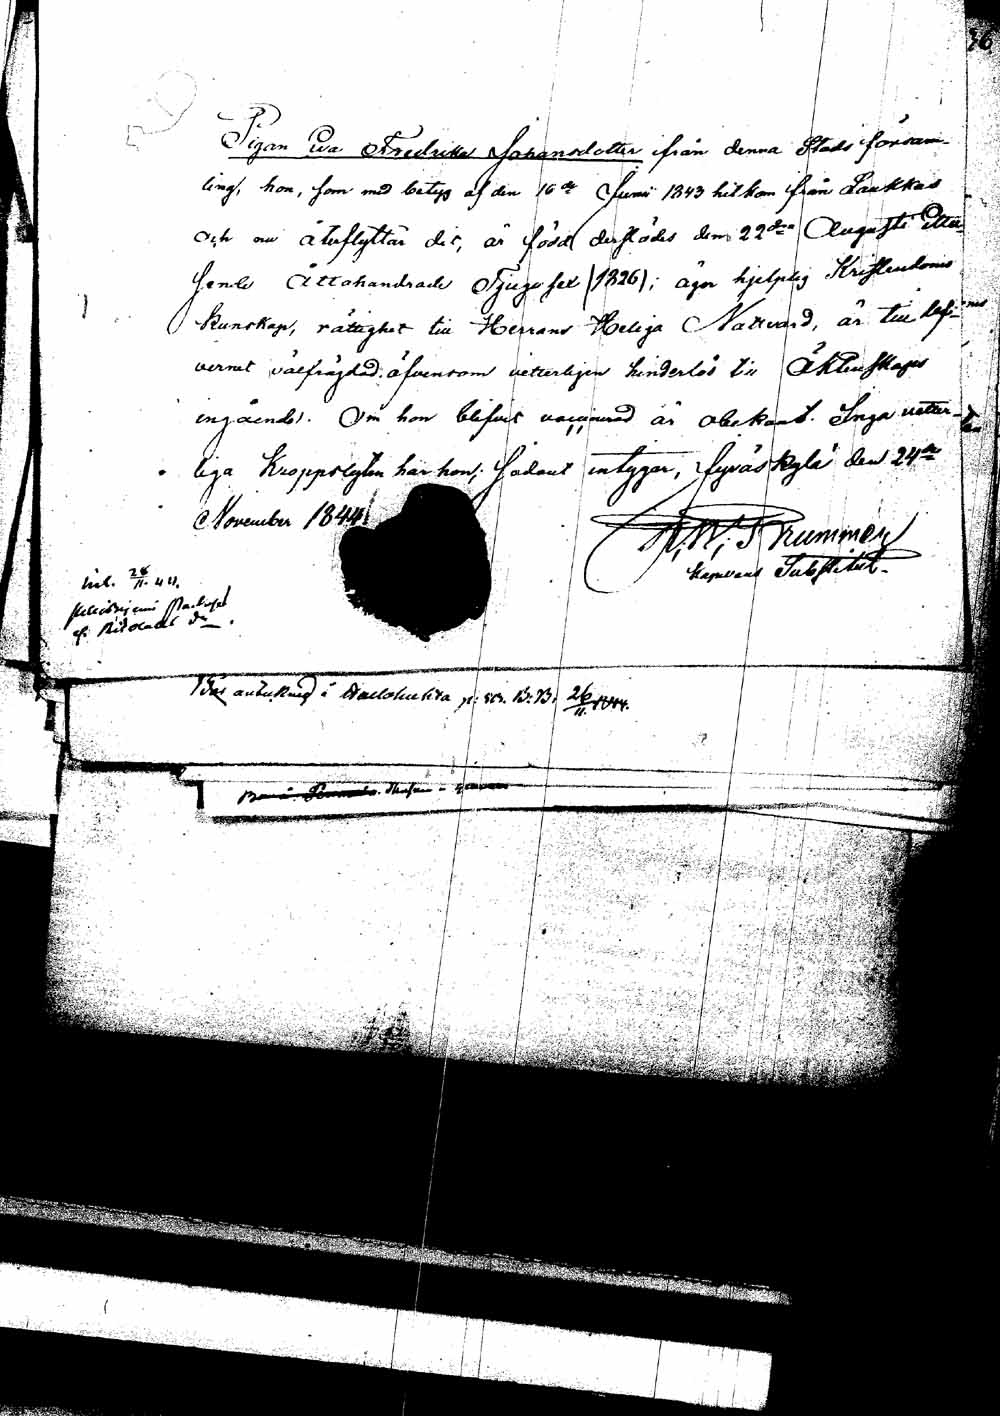 76.
Pigan Eva Fredrika Johansdotter från denna Stads försam-
ling, hon, som med betyg af den 16de Junii 1843 hitkom från Laukkas
och nu återflyttar dit, är född derstädes den 22dra Augusti Etter-
sende Åttahundrade Tjugusex (1826); äger hjelplig Kristendoms
kunskap, rättighet till Herrans Heliga Nattvard, är till lef-
vernet välfrägdad, äfvensom vetterligen hinderlös till Äktenskaps
ingående. Om hon blifvit vaccinerad är obekant. Inga vetter-
liga Kroppslyten har hon; sådant intygar, Jyväskylä den 24de
November 1844.
Brummer
Substitut.
Int. 26/11. 44.
å p: 26/11. 1844.